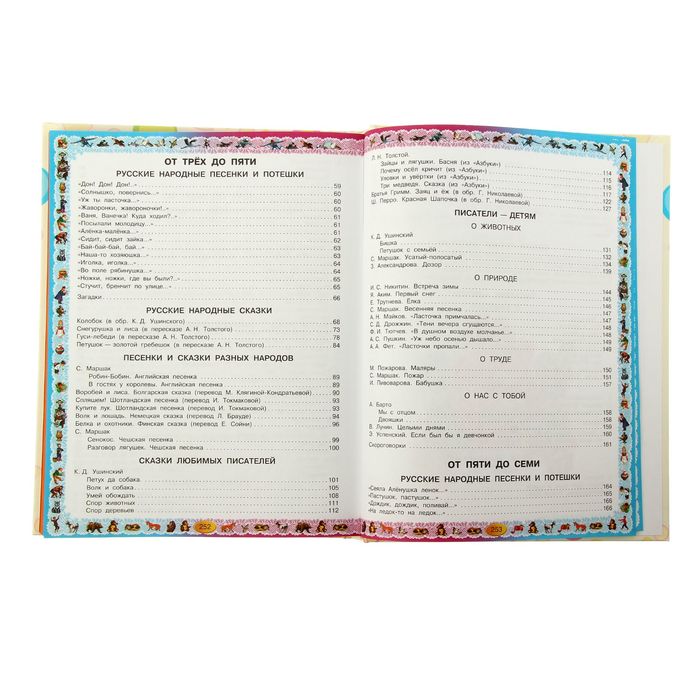 ОТ ТРЁХ ДО ПЯТИ
РУССКИЕ НАРОДНЫЕ ПЕСЕНКИ И ПОТЕШКИ
«Дон! Дон! Дон!..» 59
«Солнышко, повернись...» 60
«Уж ты ласточка...» 60
«Жаворонки, жавороночки!..» 60
«Ваня, Ванечка! Куда ходил?..» 61
«Посылали молодицу...» 61
«Алёнка-малёнка...» 61
«Сидит, сидит зайка...» 62
«Бай-бай-бай, бай...» 63
«Наша-то хозяюшка...» 64
«Иголка, иголка...» 64
«Во поле рябинушка...» 64
«Ножки, ножки, где вы были?..» 65
«Стучит, бренчит по улице...» 65
Загадки 66
РУССКИЕ НАРОДНЫЕ СКАЗКИ
Колобок (в обр. К. Д. Ушинского) 68
Снегурушка и лиса (в пересказе А. Н. Толстого) 73
Гуси-лебеди (в пересказе А. Н. Толстого) 78
Петушок — золотой гребешок (в пересказе А. Н. Толстого) 84
ПЕСЕНКИ И СКАЗКИ РАЗНЫХ НАРОДОВ
С. Маршак
Робин-Бобин. Английская песенка 89
В гостях у королевы. Английская песенка 89
Воробей и лиса. Болгарская сказка (перевод М. Клягиной-Кондратьевой) 90
Спляшем! Шотландская песенка (перевод И. Токмаковой) 93
Купите лук. Шотландская песенка (перевод И. Токмаковой) 93
Волк и лошадь. Немецкая сказка (перевод Л. Брауде) 94
Белка и охотники. Финская сказка (перевод Е. Сойни) 96
С. Маршак
Сенокос. Чешская песенка 99
Разговор лягушек. Чешская песенка 100
СКАЗКИ ЛЮБИМЫХ ПИСАТЕЛЕЙ
К. Д. Ушинский
Петух да собака 101
Волк и собака 105
Умей обождать 108
Спор животных 111
Спор деревьев 112
252
Л. Н. Толстой.
Зайцы и лягушки. Басня (из «Азбуки») 114
Почему осёл кричит (из «Азбуки») 115
Уловки и увёртки (из «Азбуки») 116
Три медведя. Сказка (из «Азбуки») 117
Братья Гримм. Заяц и ёж (в обр. Г. Николаевой) 122
Ш. Перро. Красная Шапочка (в обр. Г. Николаевой) 127
ПИСАТЕЛИ — ДЕТЯМ
О ЖИВОТНЫХ
К. Д. Ушинский
Бишка 131
Петушок с семьёй 132
С. Маршак. Усатый-полосатый
З. Александрова. Дозор 139
О ПРИРОДЕ
И. С. Никитин. Встреча зимы
Я. Аким. Первый снег
Е. Трутнева. Ёлка
С. Маршак. Весенняя песенка
А. Н. Майков. «Ласточка примчалась...»
С. Д. Дрожжин. «Тени вечера сгущаются...»
Ф. И. Тютчев. «В душном воздухе молчанье...»
А. С. Пушкин. «Уж небо осенью дышало...»
А. А. Фет. «Ласточки пропали...»
О ТРУДЕ
М. Пожарова. Маляры
С. Маршак. Пожар 151
И. Пивоварова. Бабушка 157
О НАС С ТОБОЙ
А. Барто
Мы с отцом 158
Двояшки 158
В. Лунин. Целыми днями 159
Э. Успенский. Если был бы я девчонкой 160
Скороговорки 161
ОТ ПЯТИ ДО СЕМИ
РУССКИЕ НАРОДНЫЕ ПЕСЕНКИ И ПОТЕШКИ
«Сеяла Алёнушка ленок...» 164
«Пастушок, пастушок...» 165
«Дождик, дождик, поливай...» 166
«На ледок-то на ледок...» 166
253